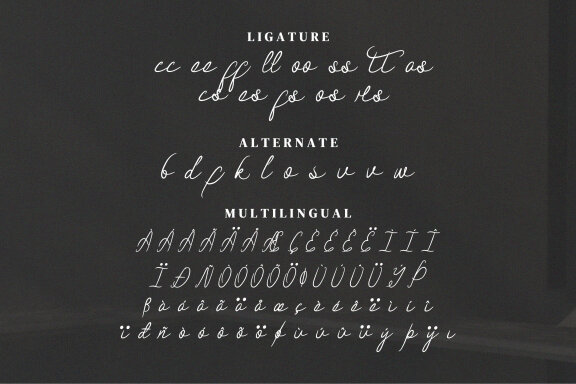 LIGATURE
cc ee ff ll oo ss tt as
cs es fs os rs
ALTERNATE
b d f k l o s u v v w
MULTILINGUAL
À Á Â Ã Ä Å Æ Ç È É Ê Ë Ì Í Î
Ï Ð Ñ Ò Ó Ô Õ Ö Ø Ù Ú Û Ü Ý Þ
ß à á â ã ä å æ ç è é ê ë ì í î
ï đ ñ ò ó ô õ ö ø ù ú û ü ý þ ÿ ı